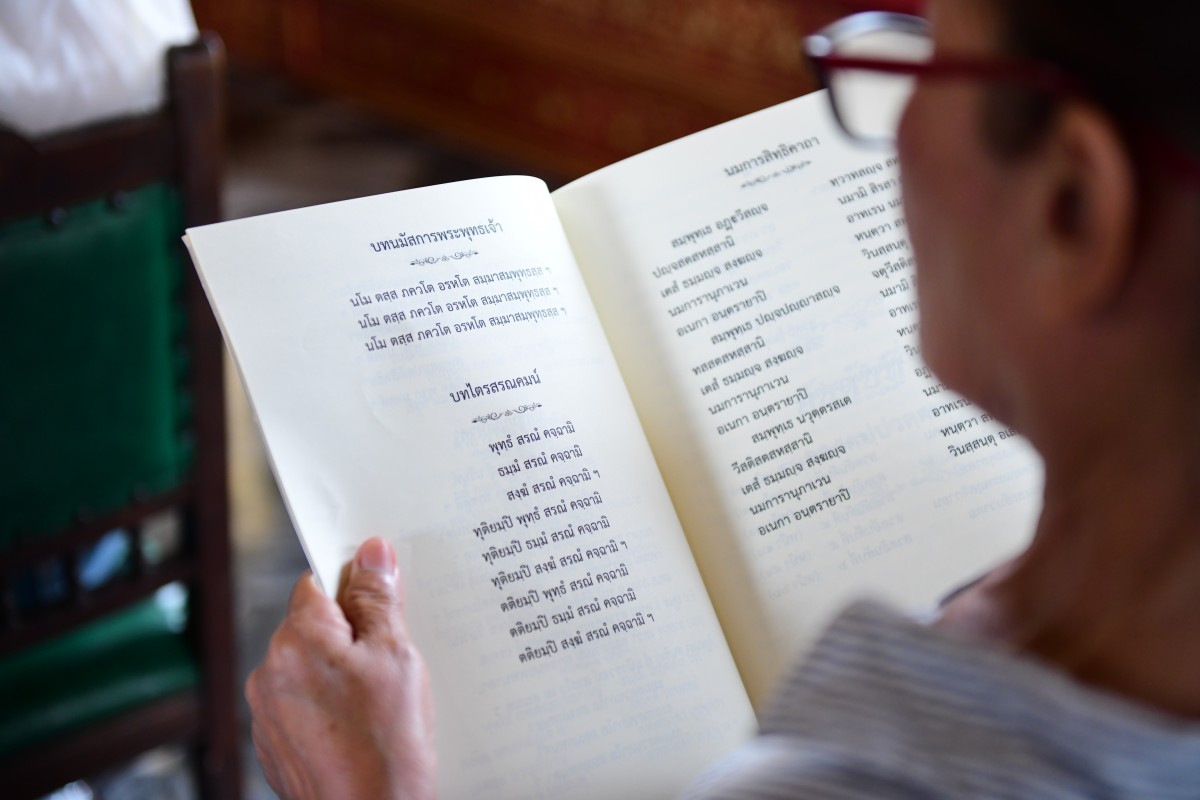 บทนมัสการพระพุทธเจ้า
นโม ตสฺส ภควโต อรหโต สมฺมาสมฺพุทฺธสฺส ฯ
นโม ตสฺส ภควโต อรหโต สมฺมาสมฺพุทฺธสฺส ฯ
นโม ตสฺส ภควโต อรหโต สมฺมาสมฺพุทฺธสฺส ฯ
บทไตรสรณคมน์
พุทฺธํ สรณํ คจฺฉามิ
ธมฺมํ สรณํ คจฺฉามิ
สงฺฆํ สรณํ คจฺฉามิ ฯ
ทุติยมฺปิ พุทฺธํ สรณํ คจฺฉามิ
ทุติยมฺปิ ธมฺมํ สรณํ คจฺฉามิ
ทุติยมฺปิ สงฺฆํ สรณํ คจฺฉามิ ฯ
ตติยมฺปิ พุทฺธํ สรณํ คจฺฉามิ
ตติยมฺปิ ธมฺมํ สรณํ คจฺฉามิ
ตติยมฺปิ สงฺฆํ สรณํ คจฺฉามิ ฯ
นมการสิทธิคาถา
สมฺพุทฺเธ อฏฺฐวีสญฺจ
ปญฺจสตสหสฺสานิ
เตสํ ธมฺมญฺจ สงฺฆญฺจ
นมการานุภาเวน
อเนกา อนฺตรายาปิ
สมฺพุทฺเธ ปญฺจปญฺญาสญฺจ
ทสสตสหสฺสานิ
เตสํ ธมฺมญฺจ สงฺฆญฺจ
นมการานุภาเวน
อเนกา อนฺตรายาปิ
สมฺพุทฺเธ นวุตฺตรสเต
วีสติสตสหสฺสานิ
เตสํ ธมฺมญฺจ สงฺฆญฺจ
นมการานุภาเวน
อเนกา อนฺตรายาปิ
ทฺวาทสญฺจ
นมามิ สิรสา
อาทเรน
หนฺตฺวา
วินสฺสนฺตุ
จตุวีสติ
นมามิ
หนฺตฺวา
อาทเรน
หนฺตฺวา
วินสฺสนฺตุ